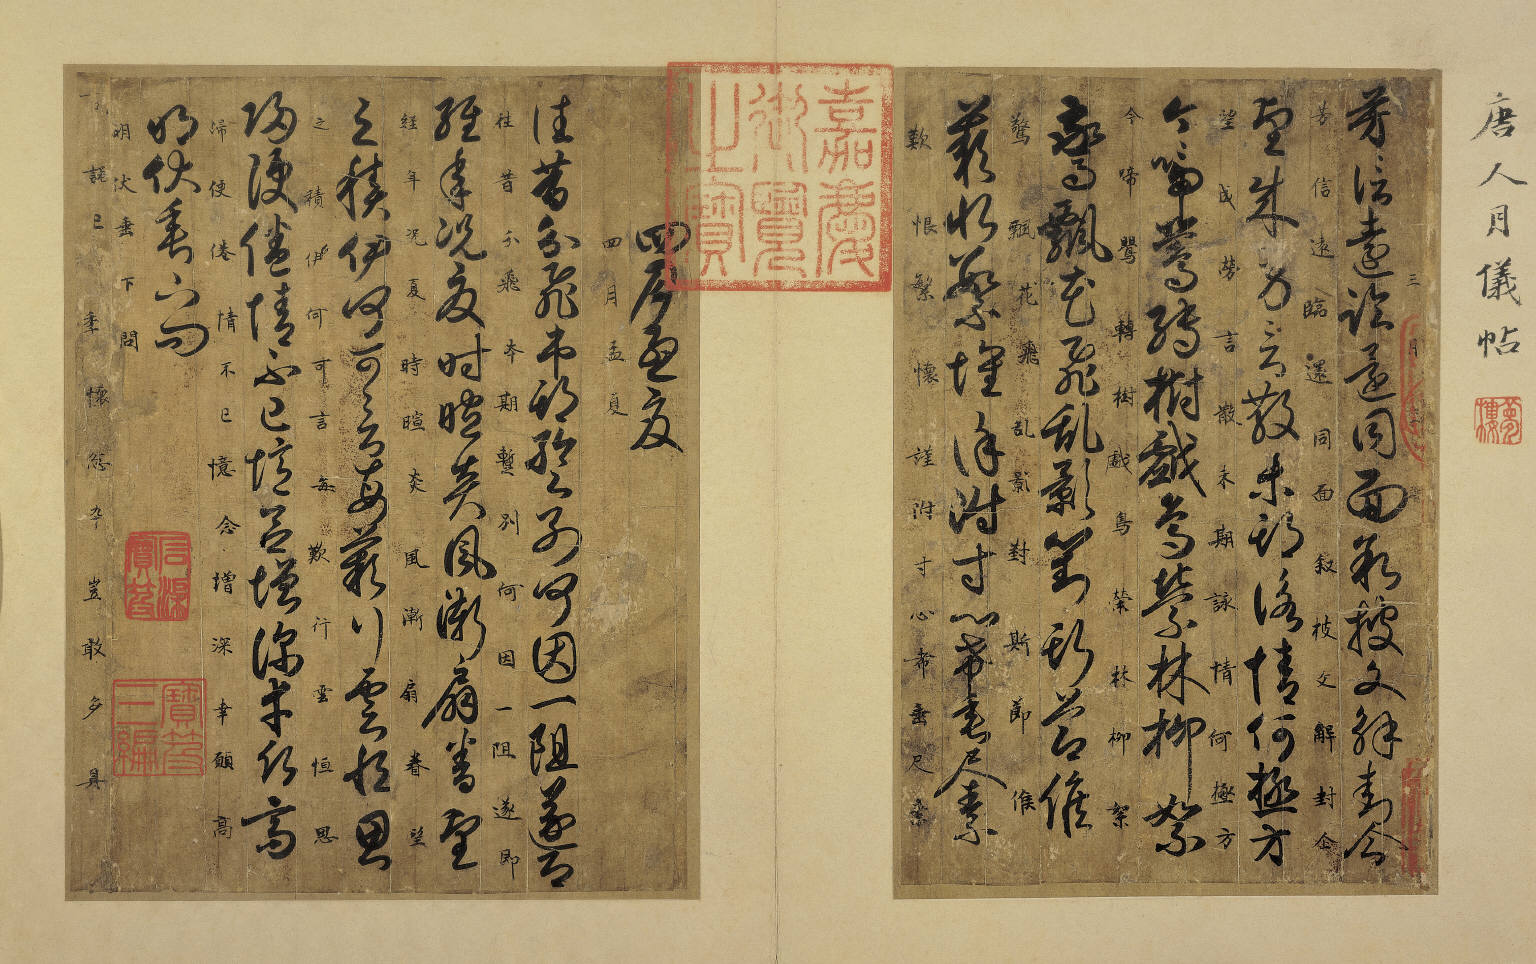 唐人月儀帖
夢樓
三月
芳信遠臨還同面叙披文解封企
芳信遠臨還同面叙披文解封企
望成勞言散未期詠情何極方
望成勞言散未期詠情何極方
今啼鶯轉樹戲鳥縈林柳絮
今啼鶯轉樹戲鳥縈林柳絮
驚飄花飛乱影對斯節候
驚飄花飛乱影對斯節候
歎恨繁懷謹附寸心希垂尺素
歎恨繁懷謹附寸心希垂尺素
嘉慶御覽之寶
四月孟夏
四月孟夏
往昔分飛本期暫別何因一阻遂即
往昔分飛本期暫別何因一阻遂即
経年況夏時暄炎風漸扇眷望
経年況夏時暄炎風漸扇眷望
之積伊何可言每歎行雲恒思
之積伊何可言每歎行雲恒思
歸使倦情不已憶念增深幸願高
歸使倦情不已憶念增深幸願高
明伏垂下問
明伏垂下問
懷忩卒豈敢多具
石渠寶笈
寶笈三編